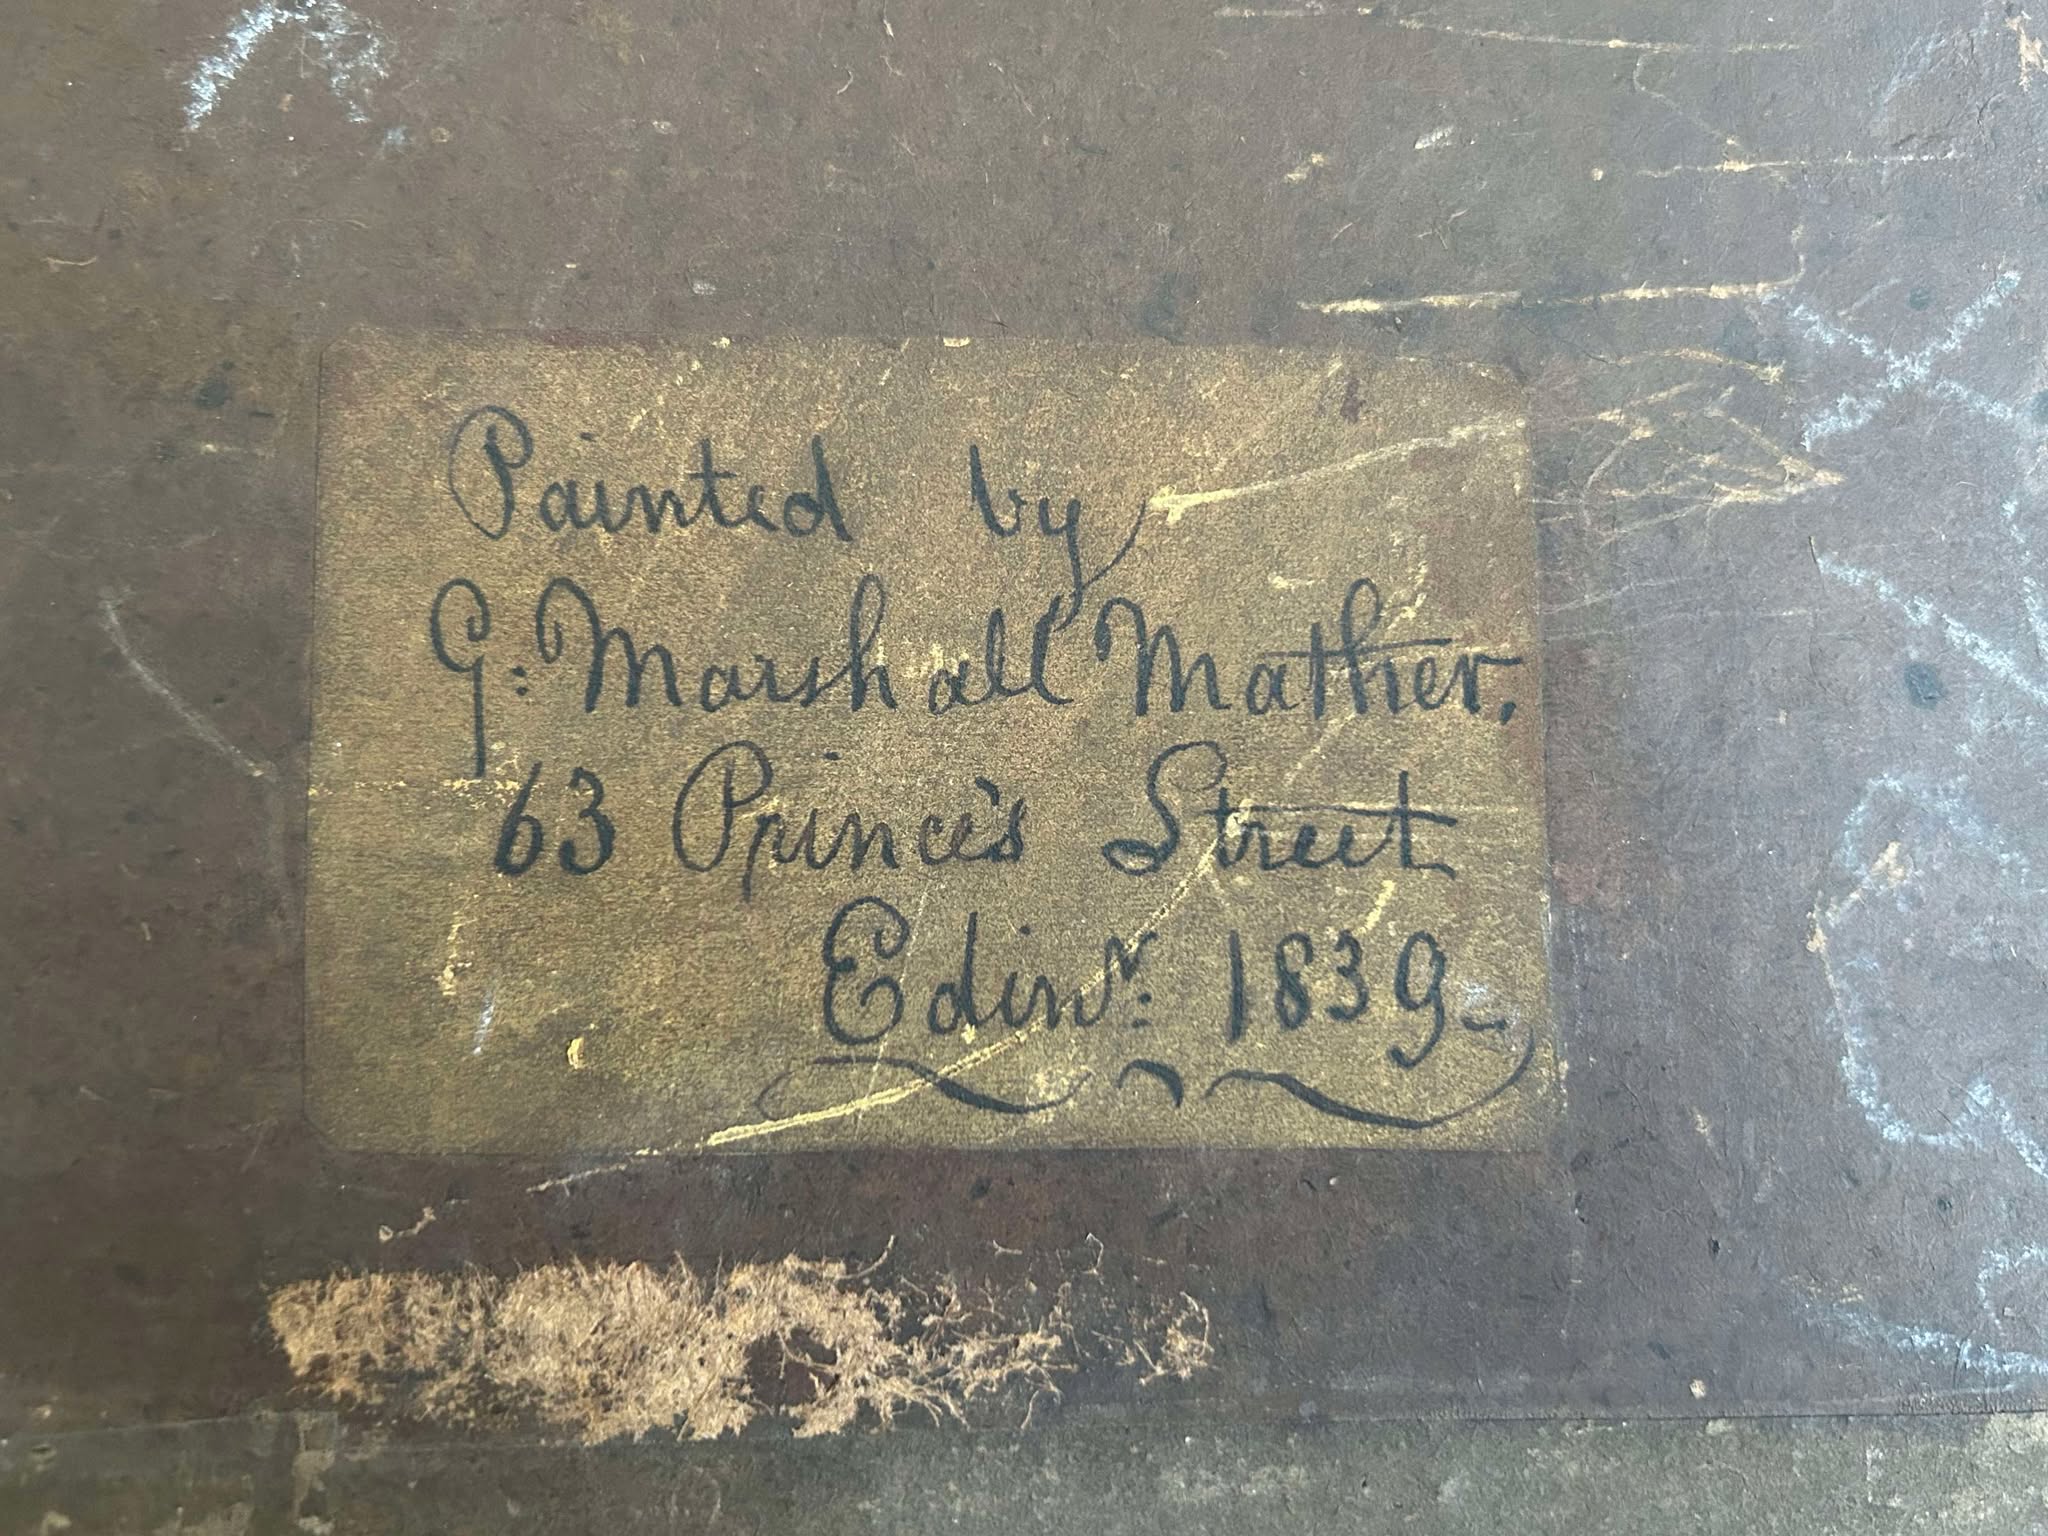 Painted by
G: Marshall Mather.
63 Prince's Street
Edinr: 1839